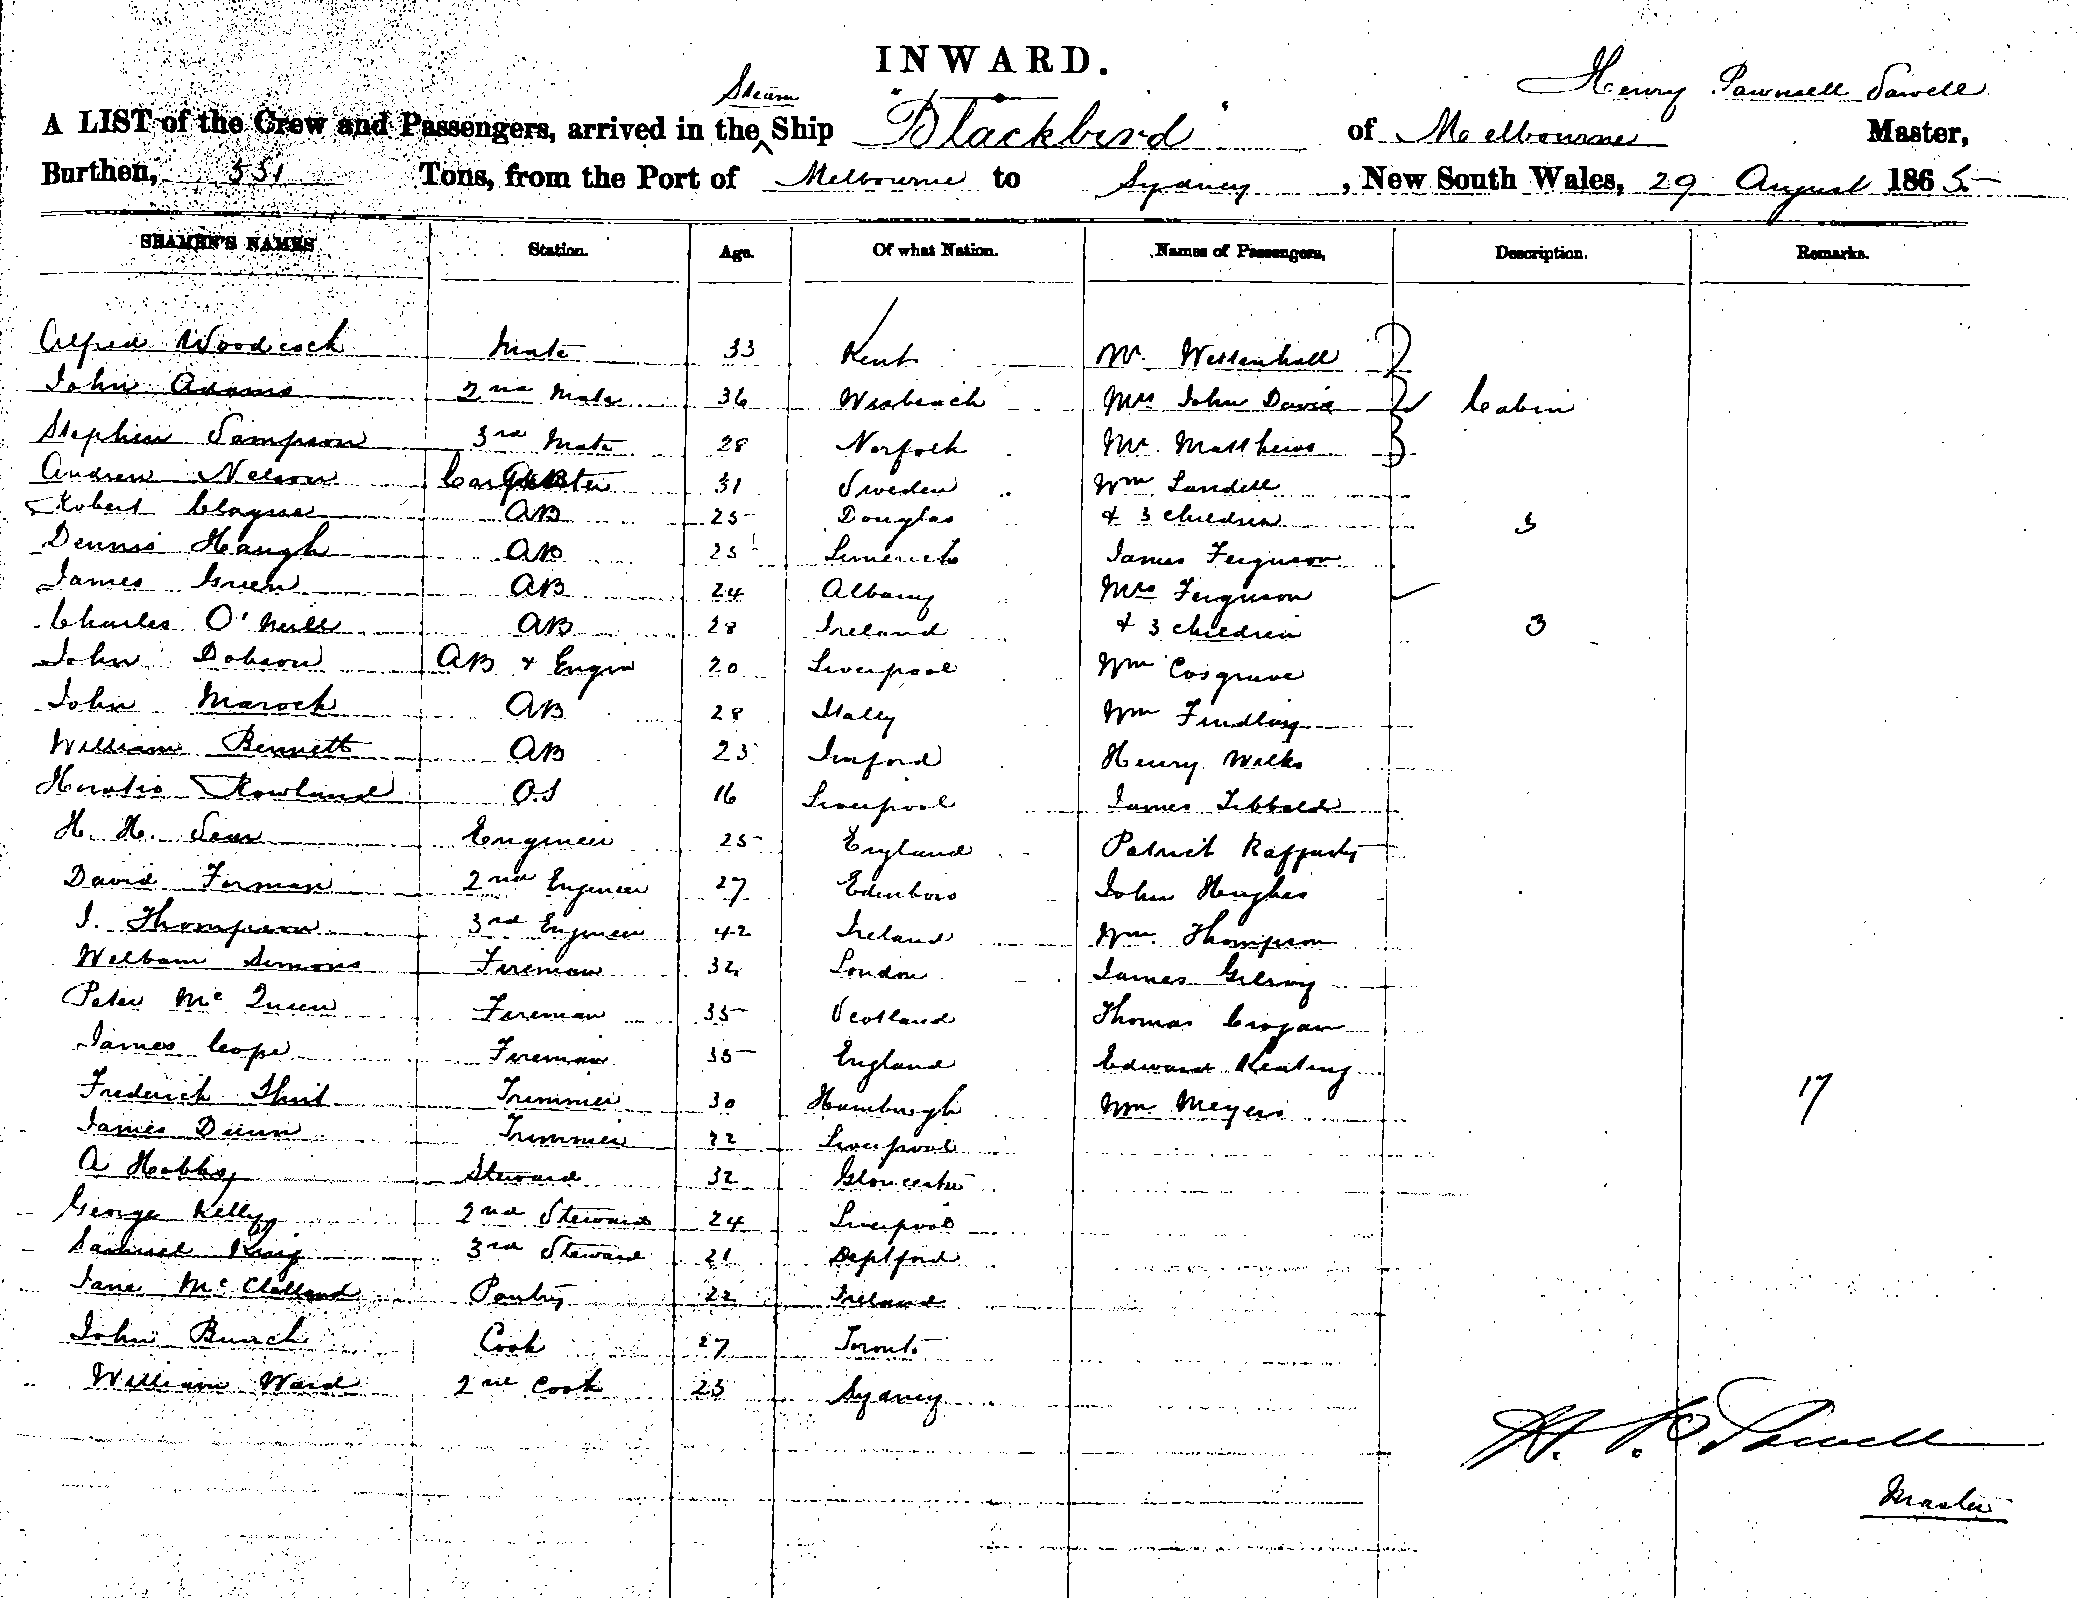 INWARD.
Henry Pawnsell Sawell
Steam
A LIST of the Crew and Passengers, arrived in the Ship "Blackbird" of Melbourne Master,
Burthen, 531 Tons, from the Port of Melbourne to Sydney, New South Wales, 29 August 1865
SEAMEN'S NAMES Station. Age. Of what Nation. Names of Passengers, Description. Remarks.
Alfred Woodcock Mate 33 Kent Mr. Wettenhall
John Adams 2nd Mate 36 Wisbeach Mrs John Davis Cabin
Stephen Sampson 3rd Mate 28 Norfolk Mr. Matthews
Andrew Nelson Carpenter 31 Sweden Wm
Robert Clague AB 25 Douglas & 3 children 3
Dennis Haugh AB 25 Limerick James Ferguson
James Green AB 24 Albany Mrs Ferguson
Charles O'Neill AB 28 Ireland & 3 children 3
John Dobson AB & Engin 20 Liverpool Wm Cosgrave
John Marock AB 28 Italy Wm Findlay
William Bennett AB 23 Henry Wilks
Horatio Rowland O.S 16 Liverpool James Tibbald
H. H. Engineer 25 England Patrick Rafferty
David Forman 2nd Engineer 27 Edenboro John Hughes
J. Thompson 3rd Engineer 42 Ireland Wm. Thompson
William Simons Fireman 32 London James Gilroy
Peter McQueen Fireman 35 Scotland Thomas Crogan
James Cope Fireman 35 England Edward Keating
Frederick Trimmer 30 Hamburgh Wm. Meyers 17
James Dunn Trimmer 22 Liverpool
A Hobbs Steward 32 Gloucester
George Kelly 2nd Steward 24 Liverpool
Samuel King 3rd Steward 21 Deptford
Jane McClelland Pantry 22 Ireland
John Bunch Cook 27 Toronto
William Ward 2nd Cook 23 Sydney
H. P. Sawell
Master